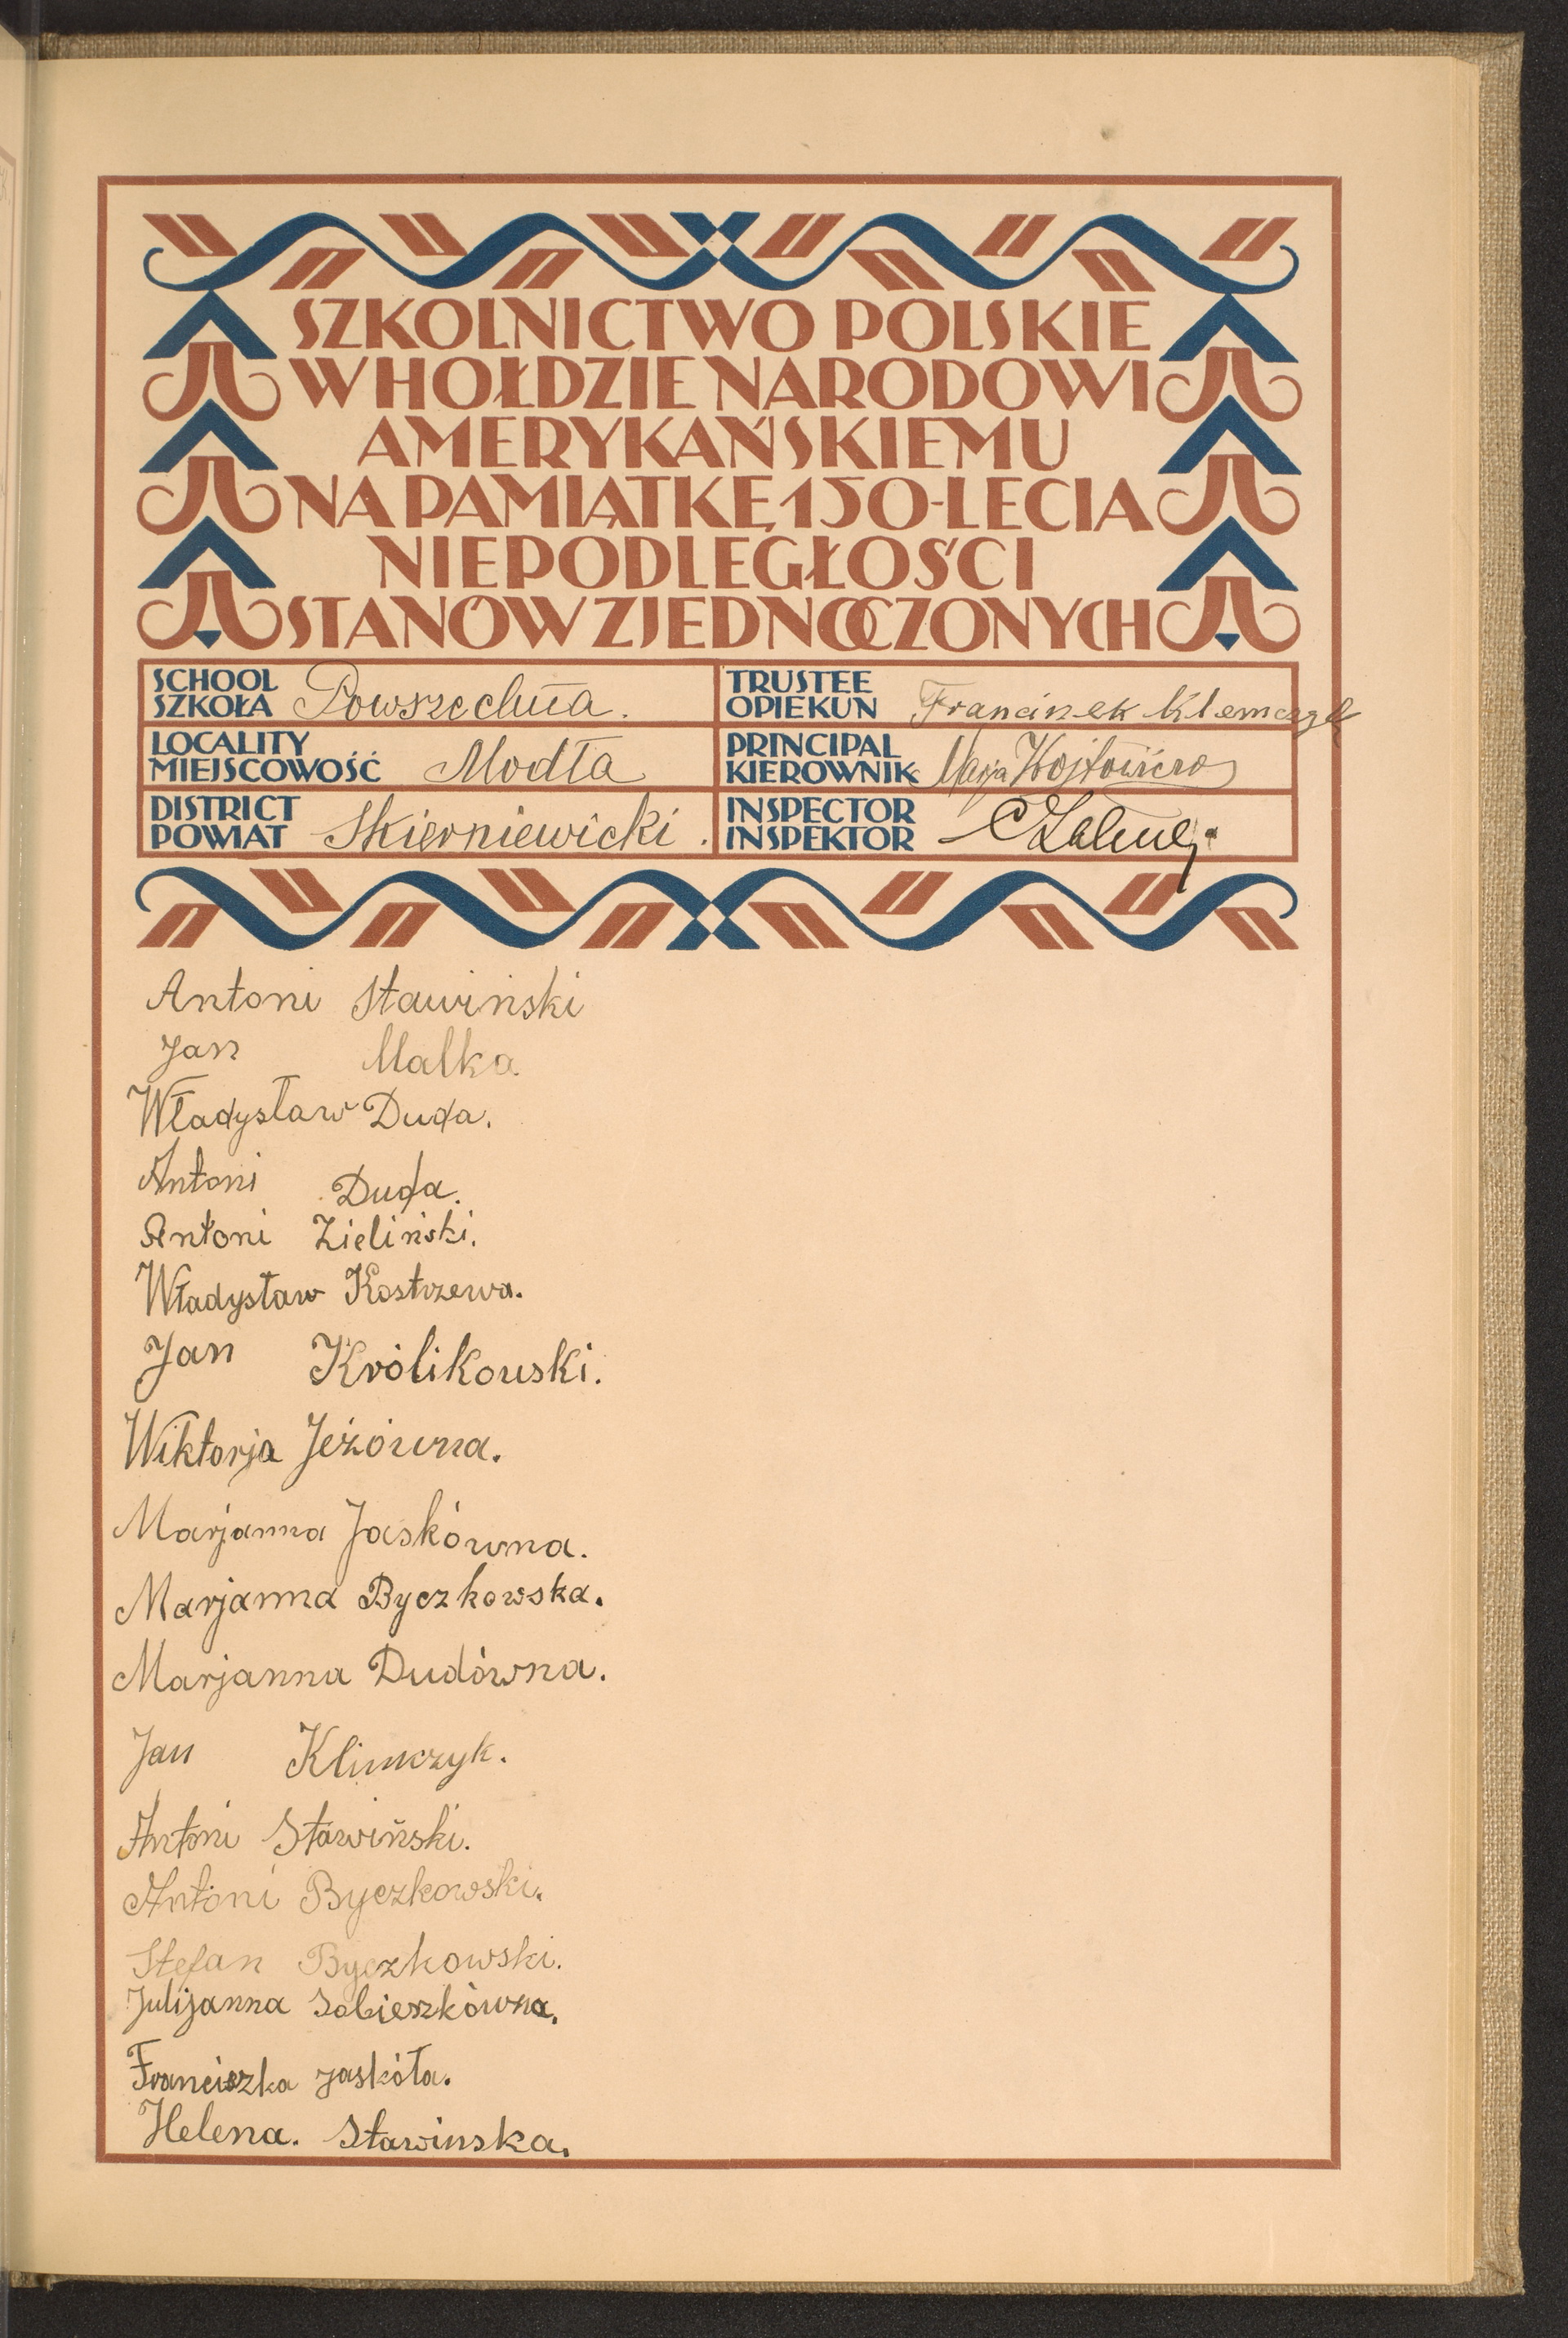 SZKOLNICTWO POLSKIE
W HOŁDZIE NARODOWI
AMERYKAŃSKIEMU
NA PAMIĄTKĘ 150-LECIA
NIEPODLEGŁOŚCI
STANÓW ZJEDNOCZONYCH
SCHOOL
SZKOŁA Powszechna.
TRUSTEE
OPIEKUN Francizek Klemczyk
LOCALITY
MIEJSCOWOŚĆ Modła
PRINCIPAL
KIEROWNIK Marja
DISTRICT
POWIAT Skierniewicki.
INSPECTOR
INSPEKTOR
Antoni Stawiński
Jan Malka.
Władysław Duda.
Antoni Duda.
Antoni Zieliński.
Władysław Kostrzewa.
Jan Królikowski.
Wiktorja Jeżówna.
Marjanna Jaskówna.
Marjanna Byczkowska.
Marjanna Dudówna.
Jan Klimczyk.
Antoni Stawiński.
Antoni Byczkowski.
Stefan Byczkowski.
Julijanna Sobieszkówna.
Franciszka Jaskóła.
Helena. Stawinska.